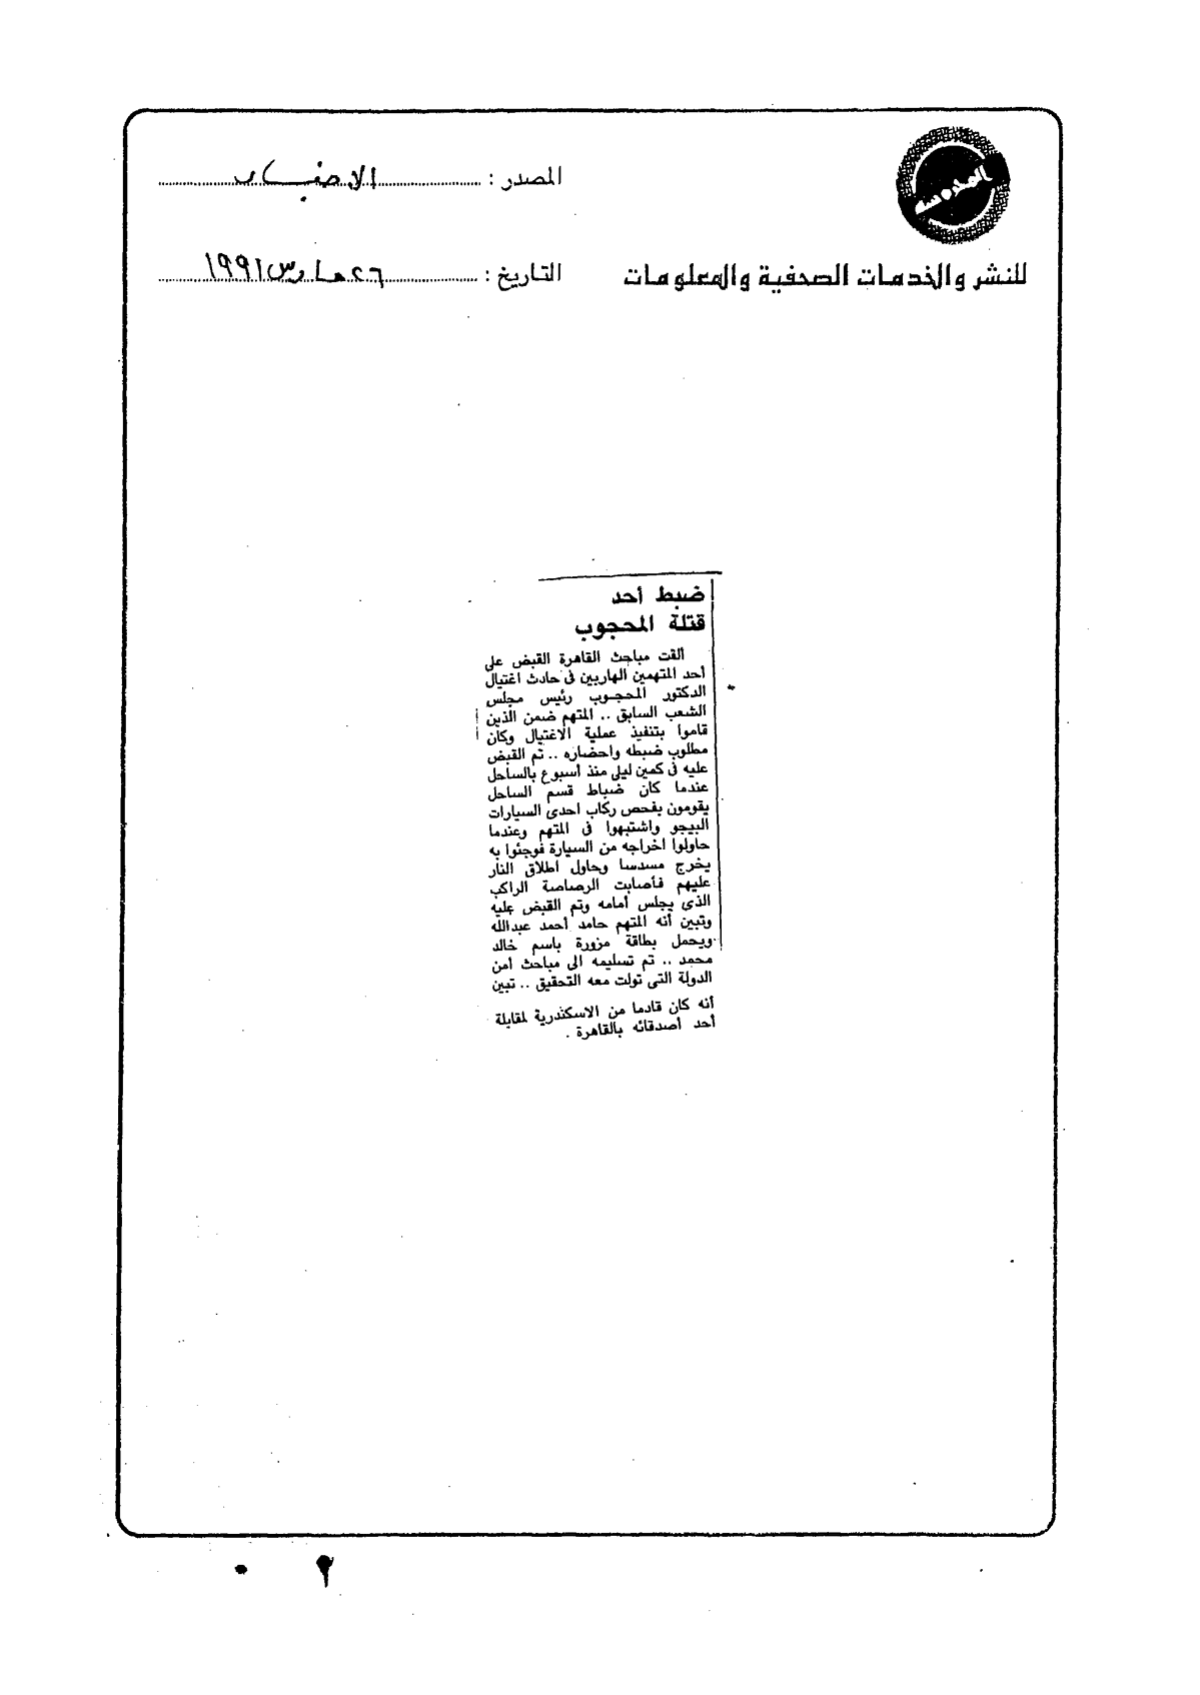 المصدر : الاخبار
للنشر والخدمات الصحفية والمعلومات
التاريخ : ٢٦ مارس ١٩٩١
ضبط أحد
قتلة المحجوب
ألقت مباحث القاهرة القبض على
أحد المتهمين الهاربين فى حادث اغتيال
الدكتور المحجوب رئيس مجلس
الشعب السابق .. المتهم ضمن الذين
قاموا بتنفيذ عملية الاغتيال وكان
مطلوب ضبطه واحضاره .. تم القبض
عليه فى كمين ليلى منذ أسبوع بالساحل
عندما كان ضباط قسم الساحل
يقومون بفحص ركاب احدى السيارات
البيجو واشتبهوا فى المتهم وعندما
حاولوا اخراجه من السيارة فوجئوا به
يخرج مسدسا وحاول اطلاق النار
عليهم فأصابت الرصاصة الراكب
الذى يجلس أمامه وتم القبض عليه
وتبين أنه المتهم حامد أحمد عبدالله
ويحمل بطاقة مزورة باسم خالد
محمد .. تم تسليمه الى مباحث أمن
الدولة التى تولت معه التحقيق .. تبين
أنه كان قادما من الاسكندرية لمقابلة
أحد أصدقائه بالقاهرة .